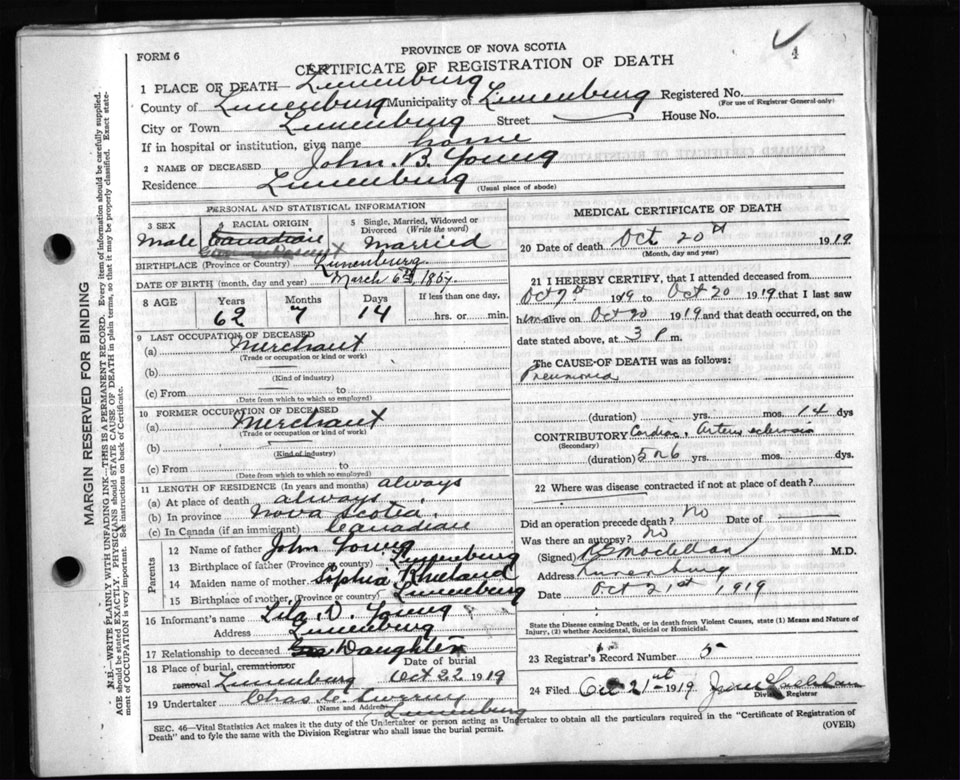 4
PROVINCE OF NOVA SCOTIA
FORM 6
CERTIFICATE OF REGISTRATION OF DEATH
1 PLACE OF DEATH— Lunenburg
County of Lunenburg Municipality of Lunenburg Registered No.
(For use of Registrar General only)
City or Town Lunenburg Street House No.
If in hospital or institution, give name home
2 NAME OF DECEASED John B. Young
Residence Lunenburg
(Usual place of abode)
PERSONAL AND STATISTICAL INFORMATION
3 SEX 4 RACIAL ORIGIN 5 Single, Married, Widowed or Divorced (Write the word)
Male Canadian Married
BIRTHPLACE (Province or Country) Lunenburg.
DATE OF BIRTH (month, day and year) March 6th, 1857
8 AGE Years Months Days If less than one day,
62 7 14 hrs. or min.
9 LAST OCCUPATION OF DECEASED
(a) Merchant
(Trade or occupation or kind or work)
(b)
(Kind of industry)
(c) From to
(Date from which to which so employed)
10 FORMER OCCUPATION OF DECEASED
(a) Merchant
(Trade or occupation or kind of work)
(b)
(Kind of industry)
(c) From to
(Date from which to which so employed)
11 LENGTH OF RESIDENCE (In years and months) always
(a) At place of death always
(b) In province Nova Scotia.
(c) In Canada (if an immigrant) Canadian
Parents
12 Name of father John Young
13 Birthplace of father (Province or country) Lunenburg
14 Maiden name of mother Sophia
15 Birthplace of mother (Province or country) Lunenburg
16 Informant's name Lila D. Young
Address Lunenburg
17 Relationship to deceased Daughter
18 Place of burial, cremation or removal Lunenburg Date of burial Oct 22 1919
19 Undertaker Chas
(Name and Address) Lunenburg
MEDICAL CERTIFICATE OF DEATH
20 Date of death Oct 20th 1919
(Month, day and year)
21 I HEREBY CERTIFY, that I attended deceased from
Oct 1919 to Oct 20 1919 that I last saw
him alive on Oct 20 1919 and that death occurred, on the
date stated above, at 3 P m.
The CAUSE OF DEATH was as follows:
Pneumonia
(duration) yrs. mos. 14 dys
CONTRIBUTORY Cardiac. Arterio sclerosis
(Secondary)
(duration) 5 or 6 yrs. mos. dys.
22 Where was disease contracted if not at place of death?
Did an operation precede death? no Date of
Was there an autopsy? no
(Signed) M.D.
Address Lunenburg
Date Oct 21st 1919
State the Disease causing Death, or in death from Violent Causes, state (1) Means and Nature of
Injury, (2) whether Accidental, Suicidal or Homicidal.
23 Registrar's Record Number 5
24 Filed Oct 21st 1919
Division Registrar
SEC. 46—Vital Statistics Act makes it the duty of the Undertaker or person acting as Undertaker to obtain all the particulars required in the "Certificate of Registration of
Death" and to fyle the same with the Division Registrar who shall issue the burial permit.
(OVER)
MARGIN RESERVED FOR BINDING
N.B.—WRITE PLAINLY WITH UNFADING INK—THIS IS A PERMANENT RECORD. Every item of information should be carefully supplied.
AGE should be stated EXACTLY. PHYSICIANS should STATE CAUSE OF DEATH in plain terms, so that it may be properly classified. Exact statement
of OCCUPATION is very important. See instructions on back of Certificate.